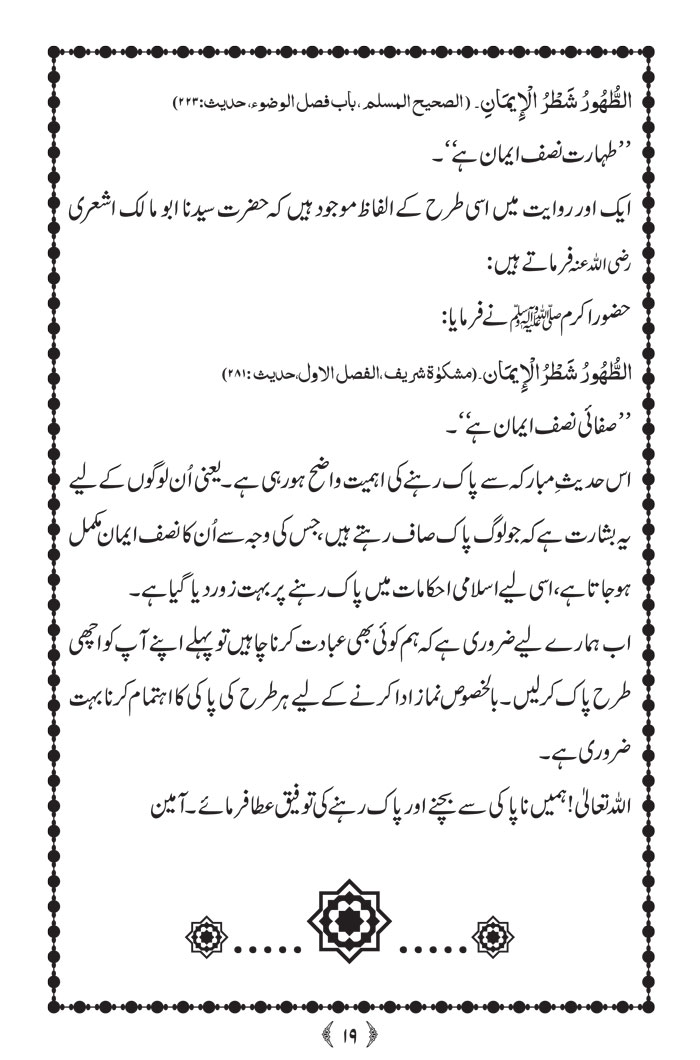 الطُّهُورُ شَطْرُ الْإِيمَانِ۔ (الصحیح المسلم، باب فصل الوضوء، حدیث:۲۲۳)
’’طہارت نصف ایمان ہے‘‘۔
ایک اور روایت میں اسی طرح کے الفاظ موجود ہیں کہ حضرت سیدنا ابو مالک اشعری
رضی اللہ عنہ فرماتے ہیں:
حضور اکرم ﷺ نے فرمایا:
الطُّهُورُ شَطْرُ الْإِيمَان۔(مشکوٰۃ شریف، الفصل الاول،حدیث:۲۸۱)
’’صفائی نصف ایمان ہے‘‘۔
اس حدیثِ مبارکہ سے پاک رہنے کی اہمیت واضح ہورہی ہے۔ یعنی اُن لوگوں کے لیے
یہ بشارت ہے کہ جو لوگ پاک صاف رہتے ہیں، جس کی وجہ سے اُن کا نصف ایمان مکمل
ہوجاتا ہے، اسی لیے اسلامی احکامات میں پاک رہنے پر بہت زور دیا گیا ہے۔
اب ہمارے لیے ضروری ہے کہ ہم کوئی بھی عبادت کرنا چاہیں تو پہلے اپنے آپ کو اچھی
طرح پاک کرلیں۔ بالخصوص نماز ادا کرنے کے لیے ہر طرح کی پاکی کا اہتمام کرنا بہت
ضروری ہے۔
اللہ تعالیٰ! ہمیں ناپاکی سے بچنے اور پاک رہنے کی توفیق عطا فرمائے۔ آمین
﴿۱۹﴾